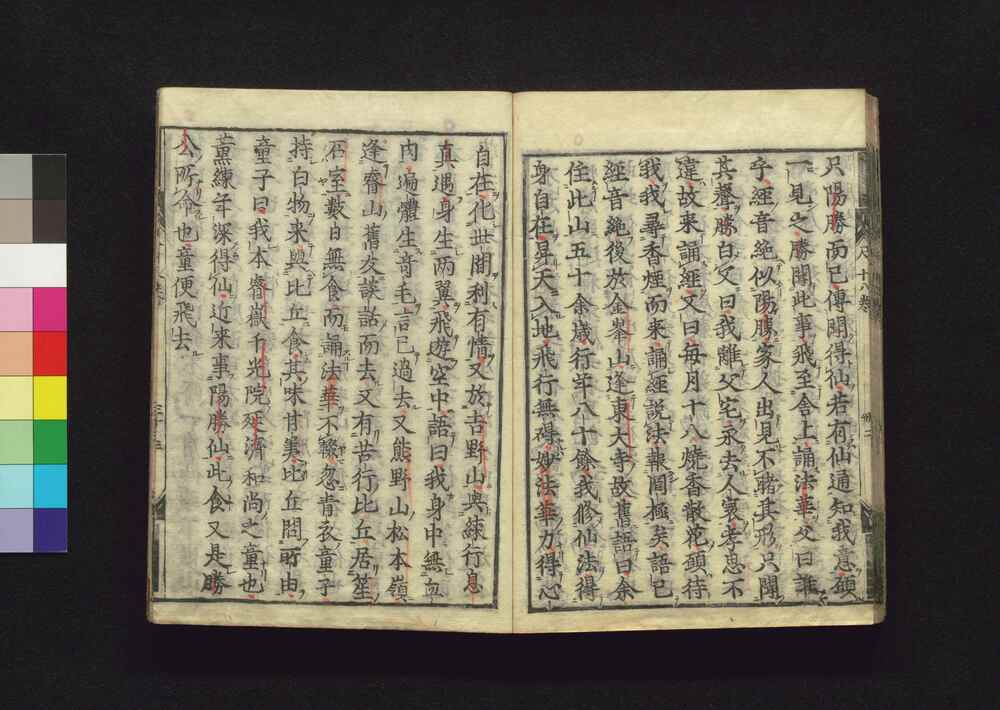 只陽勝而已傳聞得仙若有仙通知我意願
一見之勝聞此事飛至舍上誦法華父曰誰
乎經音絕似陽勝家人出見不睹其形只聞
其聲勝白父曰我雖父宅永去人寰孝思不
違故來誦經又曰每月十八燒香散花須待
我我尋香煙而來誦經說法報罔極矣語已
經音絕後於金峯山逢東大寺故舊語曰余
住此山五十余歲行年八十餘我修仙法得
身自在昇天入地飛行無碍妙法華力得心
自在化世間利有情又於古野山與練行息
真遇身生兩翼飛遊空中語曰我身中無血
肉遍體生奇毛言已過去又熊野山松本嶺
逢睿山舊友談話而去又有苦行比丘居笙
石室數日無食而誦法華不輟忽青衣童子
持白物來與比丘食其味甘美比丘問所由
童子曰我本睿嶽千光院延濟和尚之童也
薰練年深得仙近來事陽勝仙此食又是勝
公所命也童便飛去
十八卷